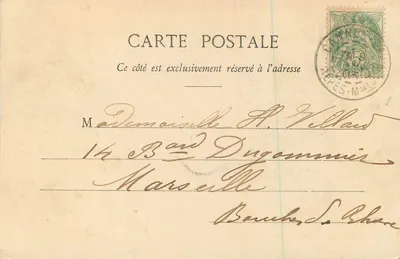 CARTE POSTALE
Ce côté est exclusivement réservé à l'adresse
Mademoiselle H. Villard
14 Bard Dugommier
Marseille
Bouches du Rhone
CANNES
ALPES-M